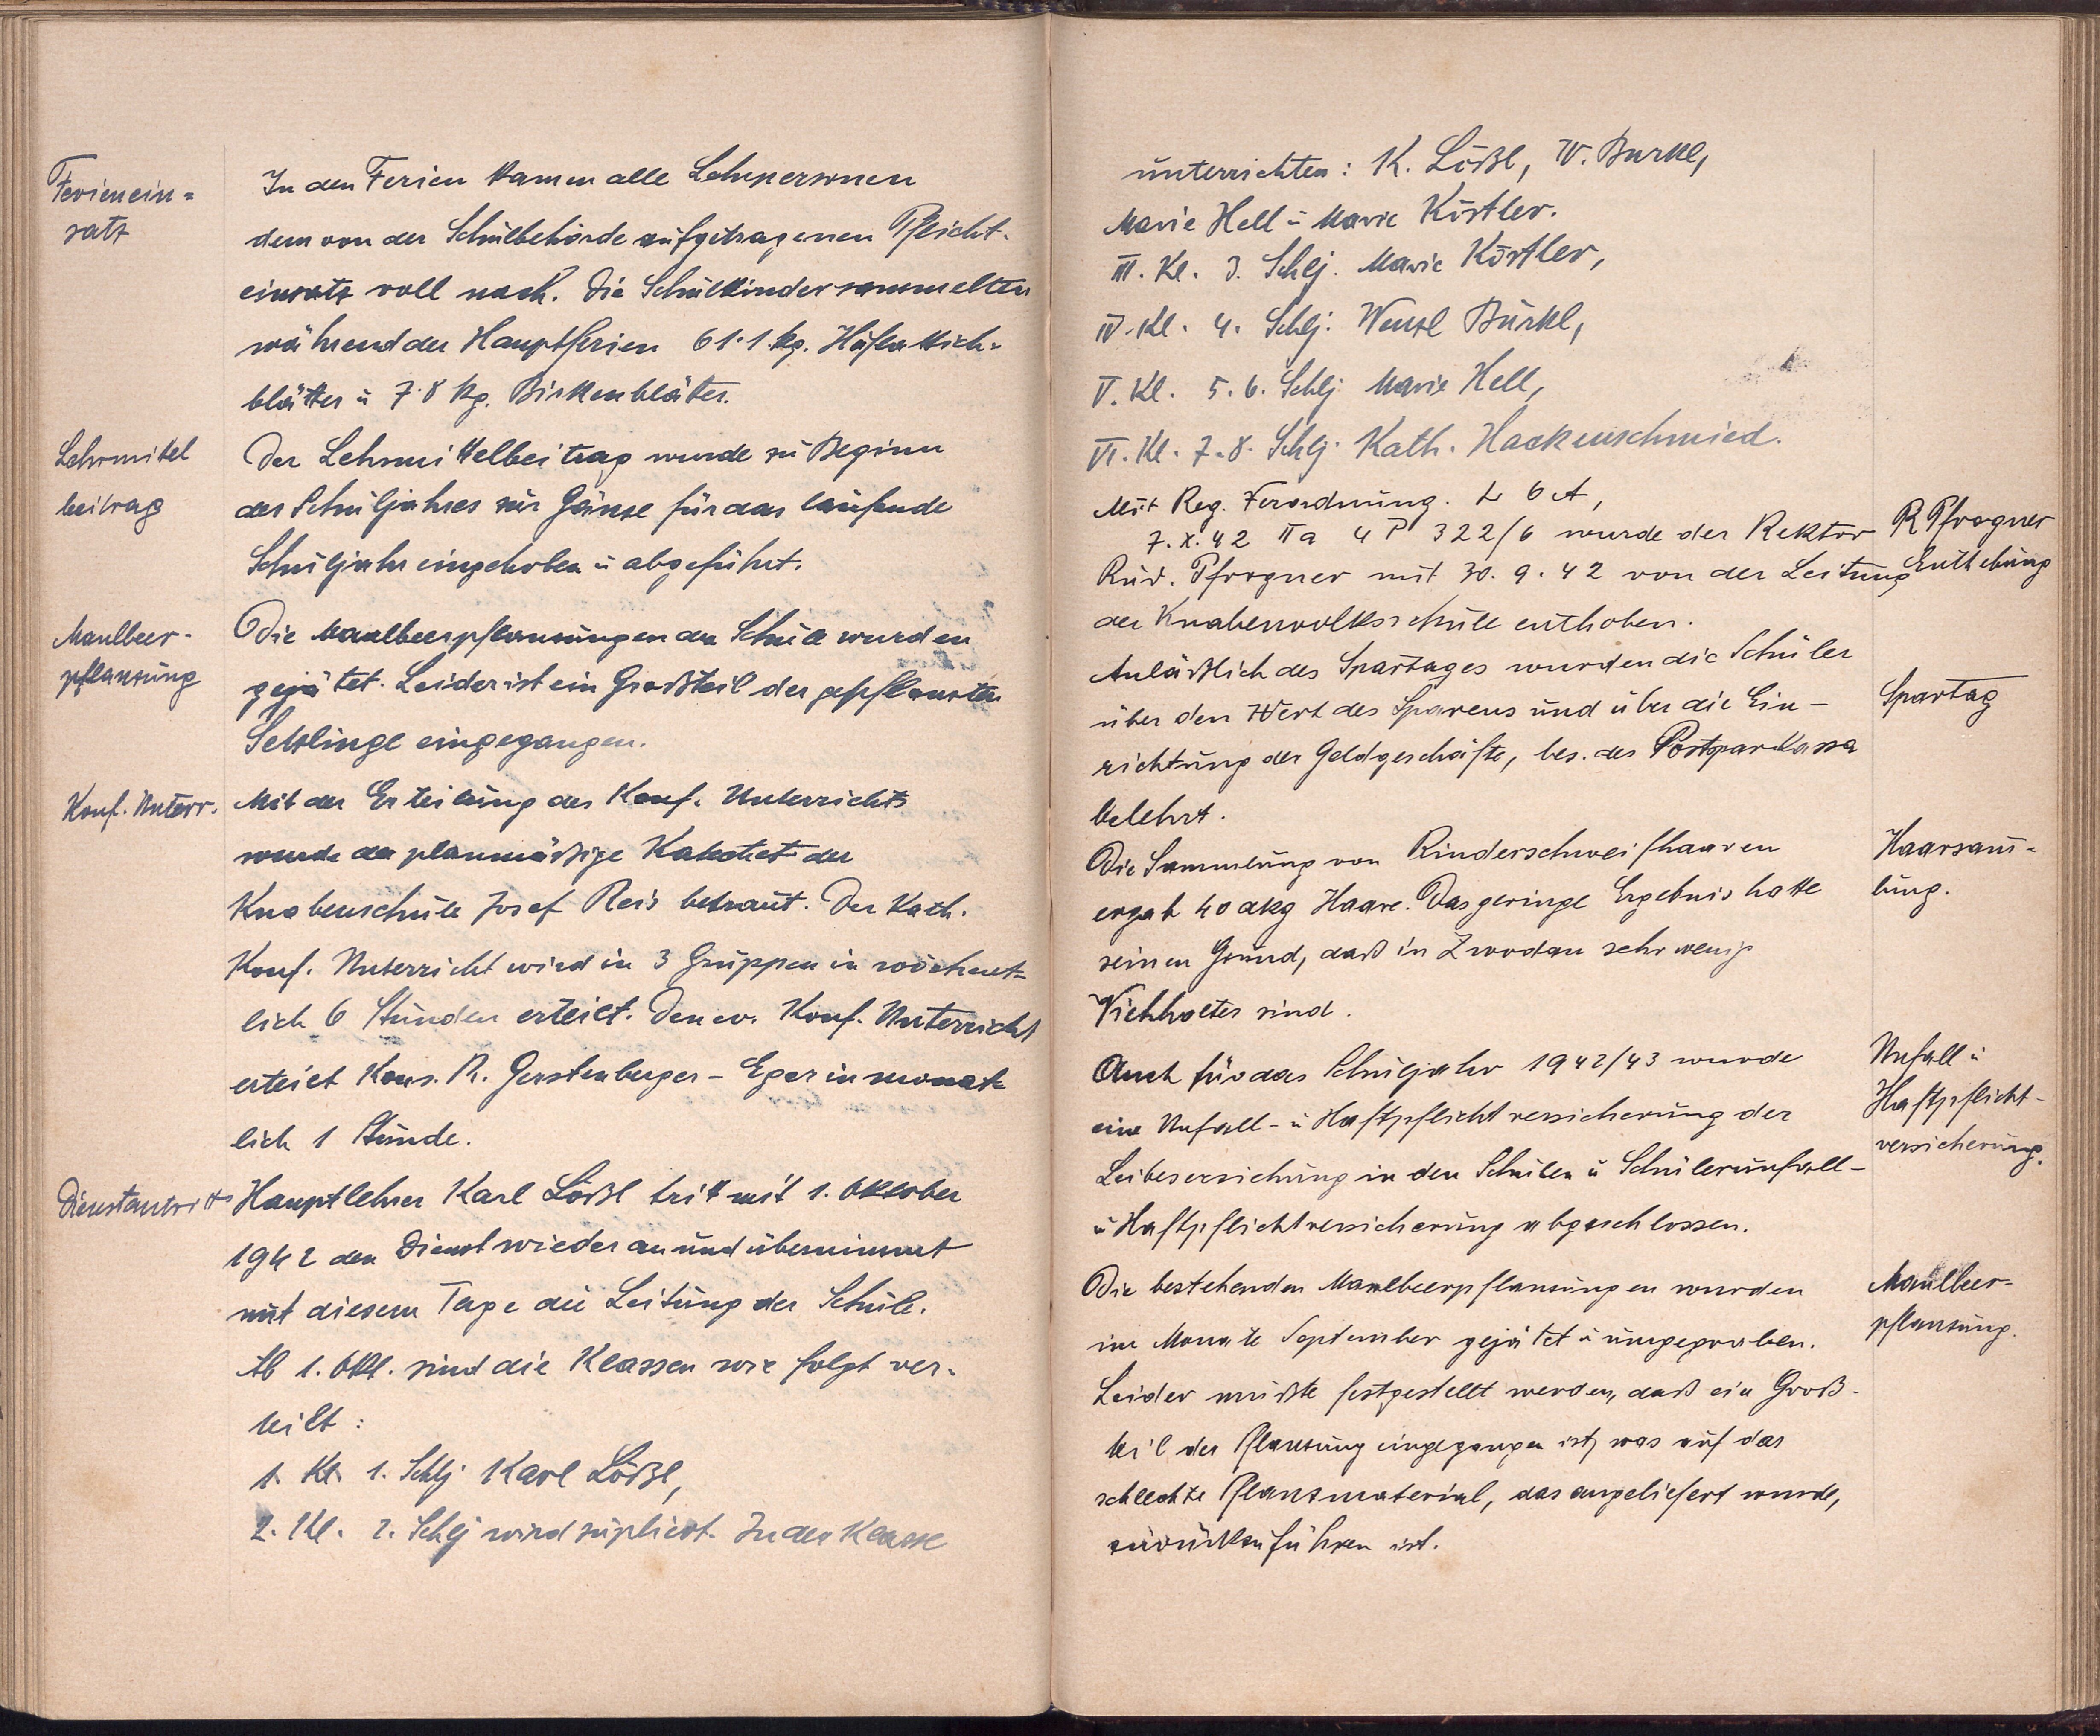 Ferienein=
satz
In den Ferien kamen alle Lehrpersonen
dem von der Schulbehörde aufgetragenen Pflicht-
einsatz voll nach. Die Schulkinder sammelten
während der Hauptferien 61·1 kg. Huflattich-
blätter u 7·8 kg. Birkenblätter.
Lehrmittel
beitrag
Der Lehrmittelbeitrag wurde zu Beginn
des Schuljahres zur Gänze für das laufende
Schuljahr eingehoben u abgeführt.
Maulbeer-
pflanzung
Die Maulbeerpflanzungen der Schule wurden
gejätet. Leider ist ein Großteil der gepflanzten
Setzlinge eingegangen.
Konf. Unterr.
Mit der Erteilung des Konf. Unterrichts
wurde der planmäßige Katechet der
Knabenschule Josef Reis betraut. Der Kath.
Konf. Unterricht wird in 3 Gruppen in wöchent=
lich 6 Stunden erteilt. Den ev. Konf. Unterricht
erteilt Kons. R. Gerstenberger - Eger in monat-
lich 1 Stunde.
Dienstantritt
Hauptlehrer Karl Lößl tritt mit 1. Oktober
1942 den Dienst wieder an und übernimmt
mit diesem Tage die Leitung der Schule.
Ab 1. Okt. sind die Klassen wie folgt ver-
teilt :
1. Kl. 1. Schlj Karl Lößl,
2. Kl. 2. Schlj wird supliert. In der Klasse
unterrichten: K. Lößl, W. Burkl,
Marie Hell u Marie Köstler.
III. Kl. 3. Schlj. Marie Köstler,
IV. Kl. 4. Schlj. Wenzl Burkl,
V. Kl. 5. 6. Schlj Marie Hell,
VI. Kl. 7.-8. Schlj. Kath. Hackenschmied.
Mit Reg. Verordnung. L 6 A,
7. X. 42 IIa 4 P 322/6 wurde der Rektor
Rud. Pfrogner mit 30. 9. 42 von der Leitung
der Knabenvolksschule enthoben.
R Pfrogner
Enthebung
Anläßlich des Spartages wurden die Schüler
über den Wert des Sparens und über die Ein-
richtung der Geldgeschäfte, bes. der Postsparkassa
belehrt.
Spartag
Die Sammlung von Rinderschweifhaaren
ergab 40 dkg Haare. Das geringe Ergebnis hatte
seinen Grund, daß in Zwodau sehr wenig
Viehhalter sind.
Haarsam-
lung.
Auch für das Schuljahr 1942/43 wurde
eine Unfall- u Haftpflichtversicherung der
Leibeserziehung in den Schulen u Schülerunfall-
u Haftpflichtversicherung abgeschlossen.
Unfall u
Haftpflicht-
versicherung.
Die bestehenden Maulbeerpflanzungen wurden
im Monate September gejätet u umgegraben.
Leider mußte festgestellt werden, daß ein Groß-
teil der Pflanzung eingegangen ist, was auf das
schlechte Pflanzmaterial, das angeliefert wurde,
zurückzuführen ist.
Maulbeer-
pflanzung.